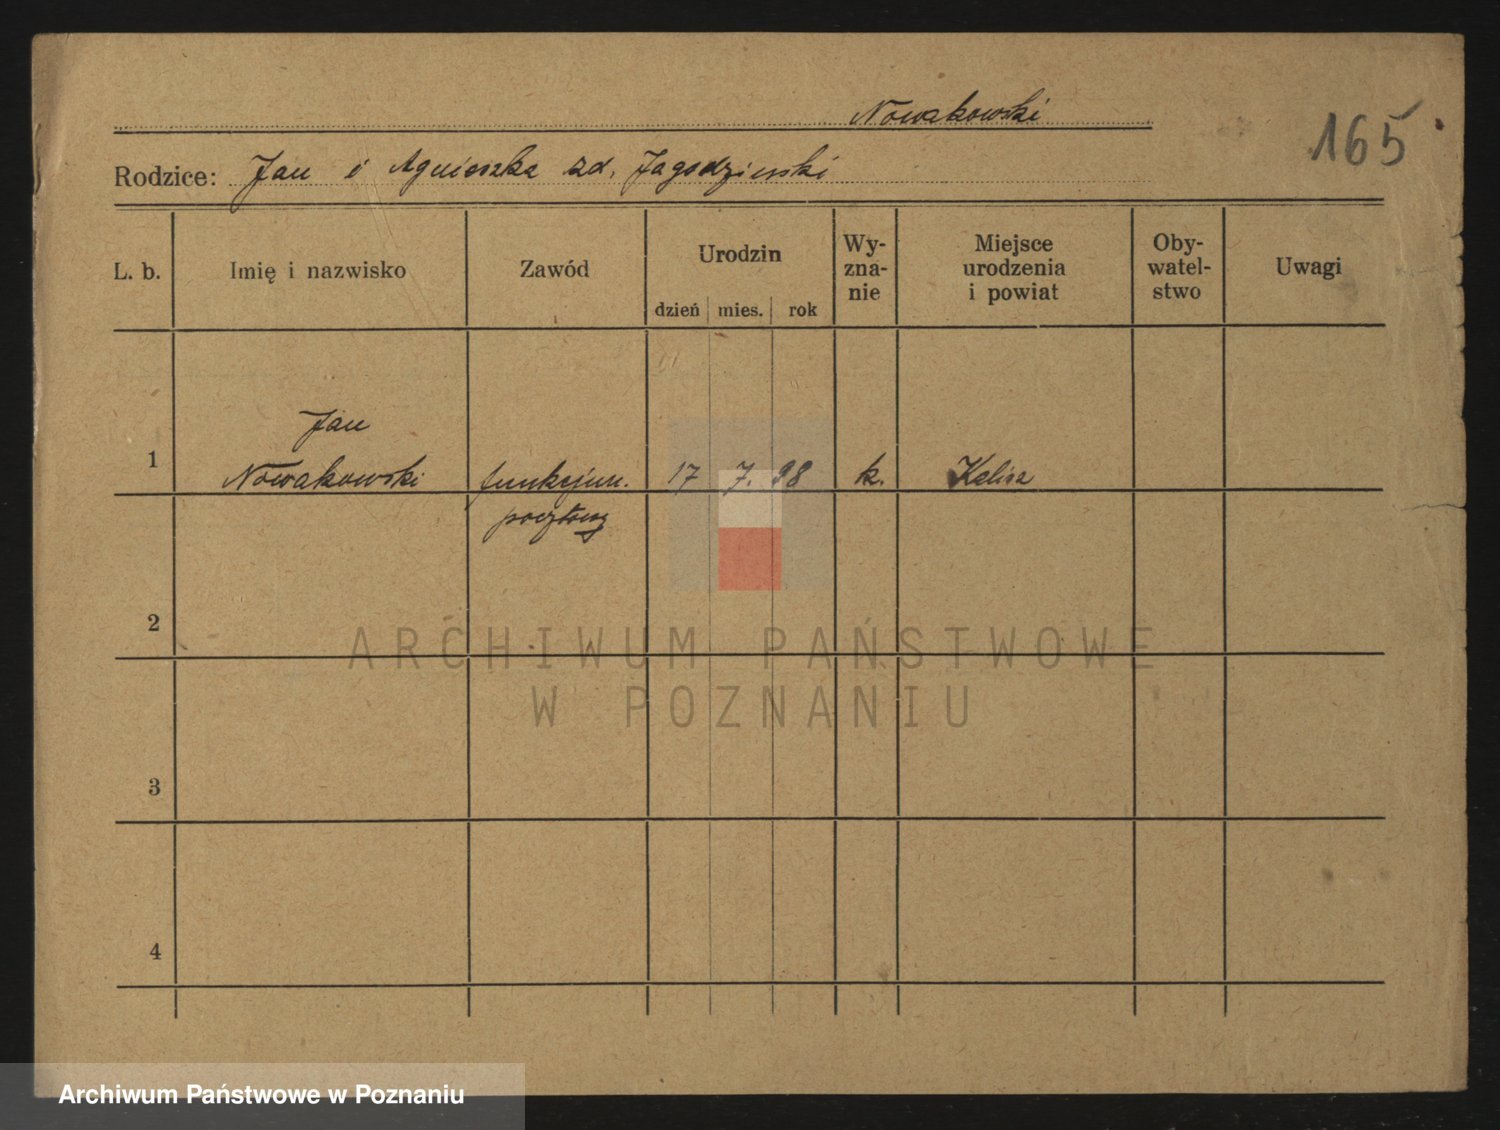 Nowakowski
165
Rodzice: Jan i Agnieszka zd. Jagodzieński
L. b. Imię i nazwisko Zawód Urodzin Wy-zna-nie Miejsce urodzenia i powiat Oby-watel-stwo Uwagi
dzień mies. rok
Jan
1 Nowakowski funkcjon. 17 7. 98 k. Kalisz
pocztowy
2
ARCHIWUM PAŃSTWOWE
W POZNANIU
3
4
Archiwum Państwowe w Poznaniu